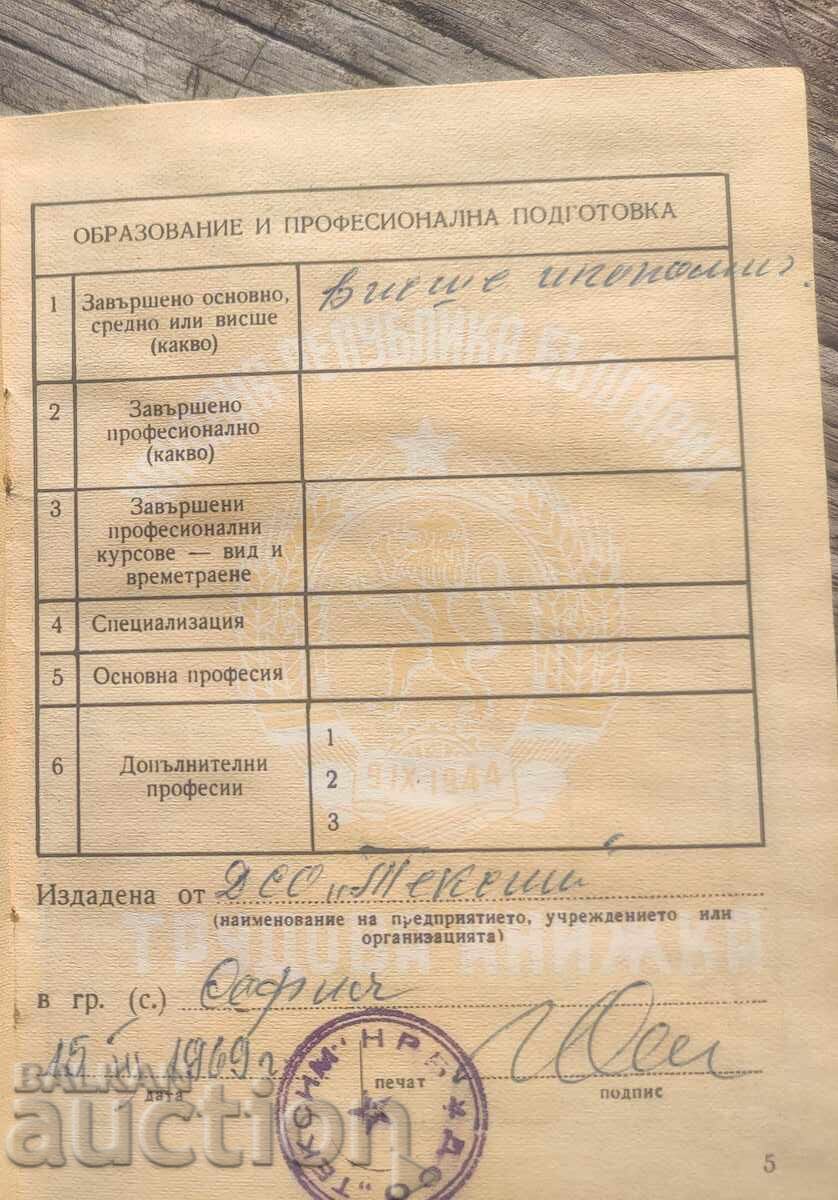 ОБРАЗОВАНИЕ И ПРОФЕСИОНАЛНА ПОДГОТОВКА
1 Завършено основно, средно или висше (какво) Висше икономич.
2 Завършено професионално (какво)
3 Завършени професионални курсове — вид и времетраене
4 Специализация
5 Основна професия
6 Допълнителни професии
1
2
3
НАРОДНА РЕПУБЛИКА БЪЛГАРИЯ
9 IX 1944
ТРУДОВА КНИЖКА
Издадена от ДСО „Тексим"
(наименование на предприятието, учреждението или
организацията)
в гр. (с.) София
15 III 1969 г
дата
печат
подпис
НРБ ДСО "ТЕКСИМ"
BALKAN
auction
5